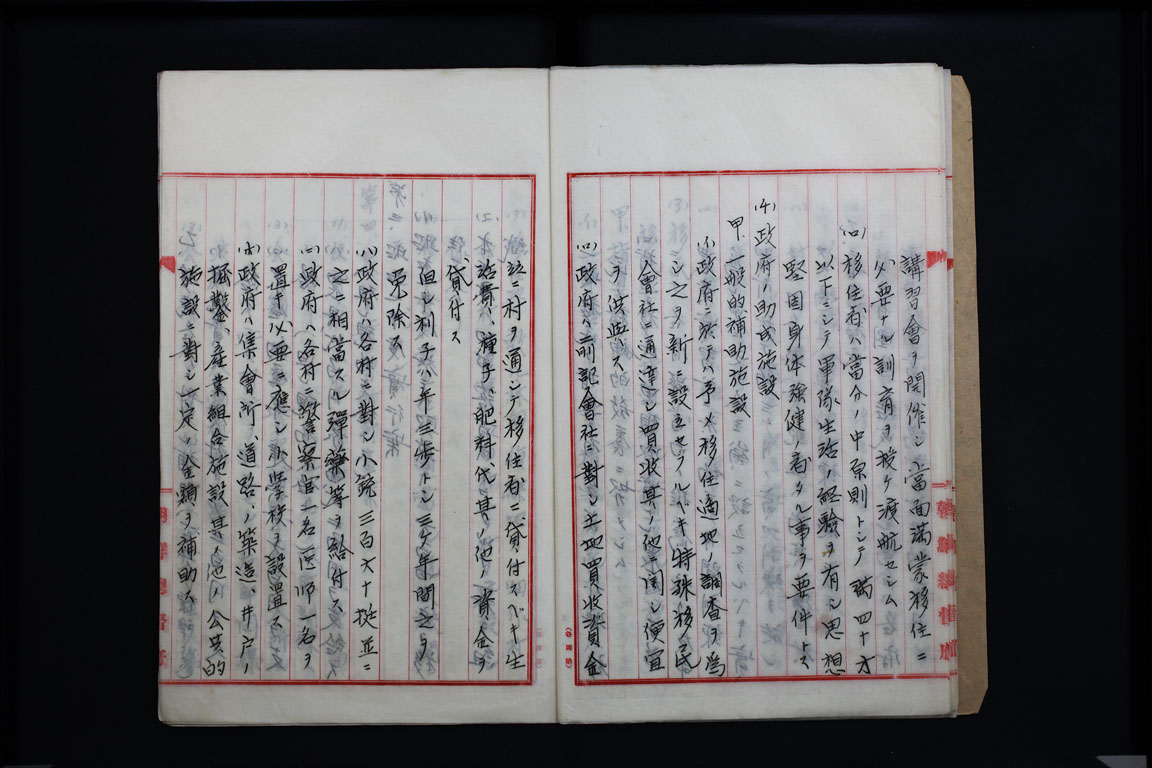 講習會ヲ開催シ當面滿蒙移住ニ
必要ナル訓育ヲ授ケ渡航セシム
(ロ)移住者ハ當分ノ中原則トシテ満四十才
以下ニシテ軍隊生活ノ経驗ヲ有シ思想
堅固身体強健ノ者タル事ヲ要件トス
(4)政府ノ助成施設
甲、一般的補助施設
(イ)政府ニ於テハ予メ移住適地ノ調査ヲ為
シ之ヲ新ニ設立セラルベキ特殊移民
會社ニ通達シ買收其ノ他ニ関シ便宜
ヲ供與ス
(ロ)政府ハ前記會社ニ對シ土地買收資金
並ニ村ヲ通シテ移住者ニ貸付スベキ生
活費、種子肥料代其ノ他ノ資金ヲ
貸付ス
但シ利子ハ年三歩トシ三ケ年間之ヲ
免除ス
(ハ)政府ハ各村ニ對シ小銃三百六十挺並ニ
之ニ相當スル彈藥等ヲ給付ス
(ニ)政府ハ各村ニ警察官一名医師一名ヲ
置キ必要ニ應シ小学校ヲ設置ス
(ホ)政府ハ集會所、道路ノ築造、井戸ノ
掘鑿、産業組合施設其ノ他ノ公共的
施設ニ對シ一定ノ金額ヲ補助ス